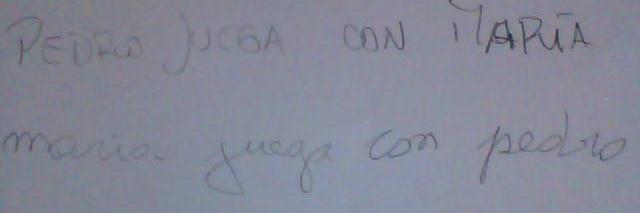 PEDRO JUEGA CON MARÍA
maria juega con pedro